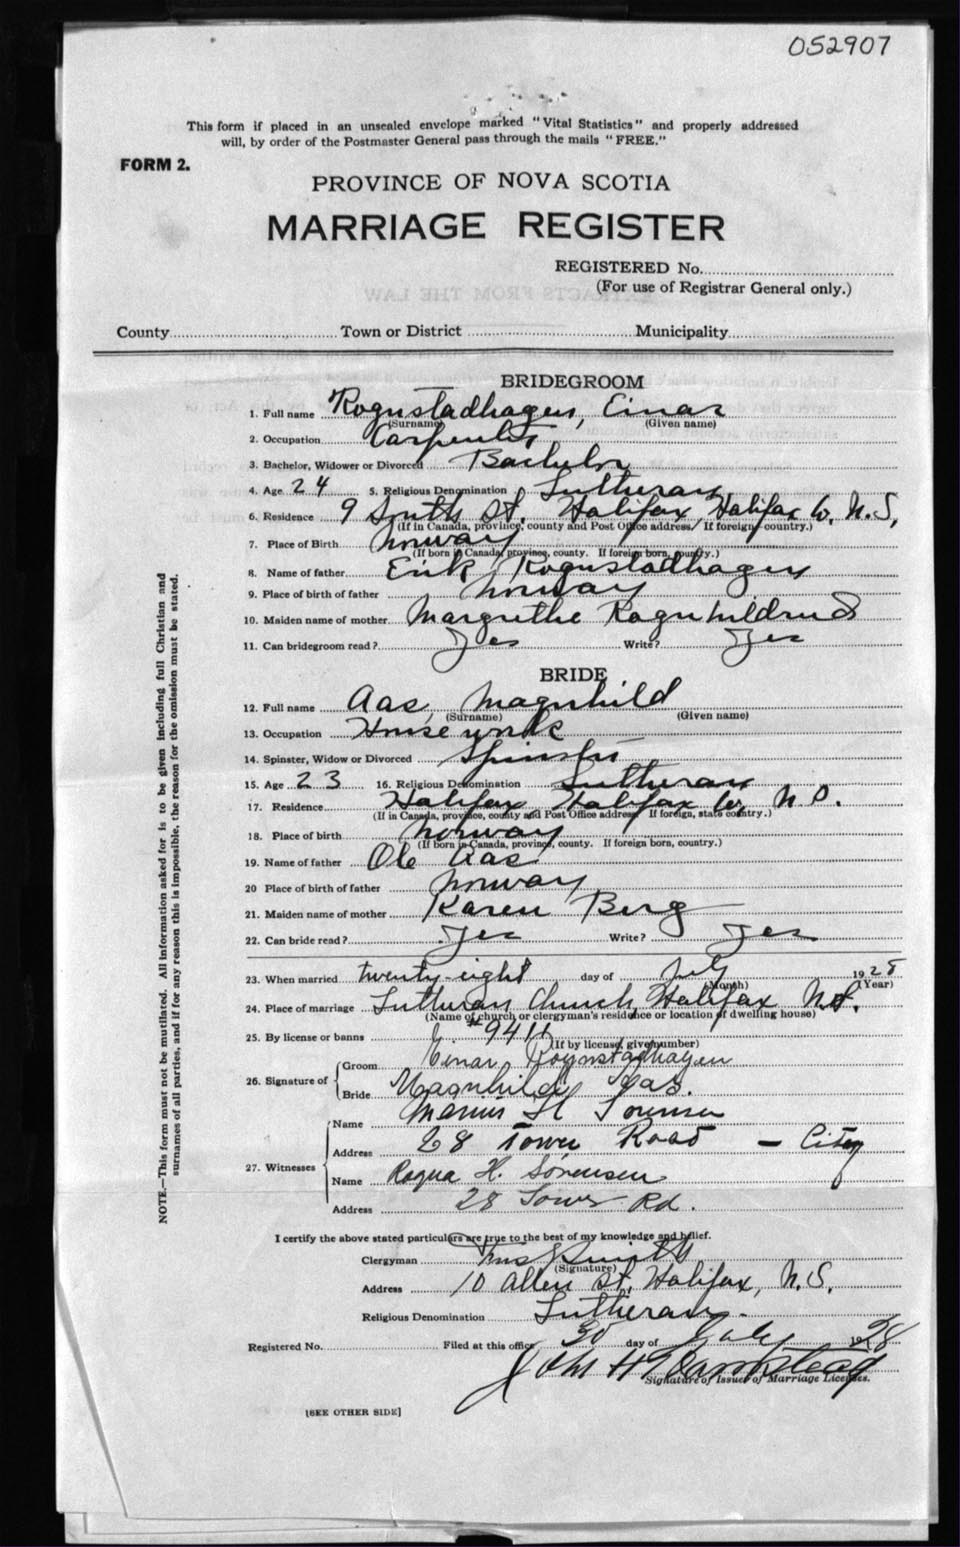 052907
This form if placed in an unsealed envelope marked "Vital Statistics" and properly addressed
will, by order of the Postmaster General pass through the mails "FREE."
FORM 2.
PROVINCE OF NOVA SCOTIA
MARRIAGE REGISTER
REGISTERED No.
(For use of Registrar General only.)
County Town or District Municipality
BRIDEGROOM
1. Full name Rognstadhagen, Einar
(Surname) (Given name)
2. Occupation Carpenter
3. Bachelor, Widower or Divorced Bachelor
4. Age 24 5. Religious Denomination Lutheran
6. Residence 9 South St. Halifax, Halifax Co. N.S.
(If in Canada, province, county and Post Office address. If foreign country.)
7. Place of Birth Norway
(If born in Canada, province, county. If foreign born, country.)
8. Name of father Erik Rognstadhagen
9. Place of birth of father Norway
10. Maiden name of mother Margrethe
11. Can bridegroom read? Yes Write? Yes
BRIDE
12. Full name Aas, Magnhild
(Surname) (Given name)
13. Occupation House work
14. Spinster, Widow or Divorced Spinster
15. Age 23 16. Religious Denomination Lutheran
17. Residence Halifax Halifax Co. N.S.
(If in Canada, province, county and Post Office address. If foreign, state country.)
18. Place of birth Norway
(If born in Canada, province, county. If foreign born, country.)
19. Name of father Ole Aas
20 Place of birth of father Norway
21. Maiden name of mother Karen Berg
22. Can bride read? Yes Write? Yes
23. When married twenty-eight day of July 1928
(Month) (Year)
24. Place of marriage Lutheran Church, Halifax N.S.
(Name of church or clergyman's residence or location of dwelling house)
25. By license or banns #9411
(If by license, give number)
26. Signature of Groom Einar Rognstadhagen
Bride Magnhild Aas.
27. Witnesses Name Marius H Sorensen
Address 28 Tower Road – City
Name Ragna H. Sørensen
Address 28 Tower Rd.
I certify the above stated particulars are true to the best of my knowledge and belief.
Clergyman
(Signature)
Address 10 Allen St. Halifax, N.S.
Religious Denomination Lutheran.
Registered No. Filed at this office 30 day of July 1928
John H
Signature of Issuer of Marriage Licenses.
[SEE OTHER SIDE]
NOTE.—This form must not be mutilated. All information asked for is to be given including full Christian and
surnames of all parties, and if for any reason this is impossible, the reason for the omission must be stated.